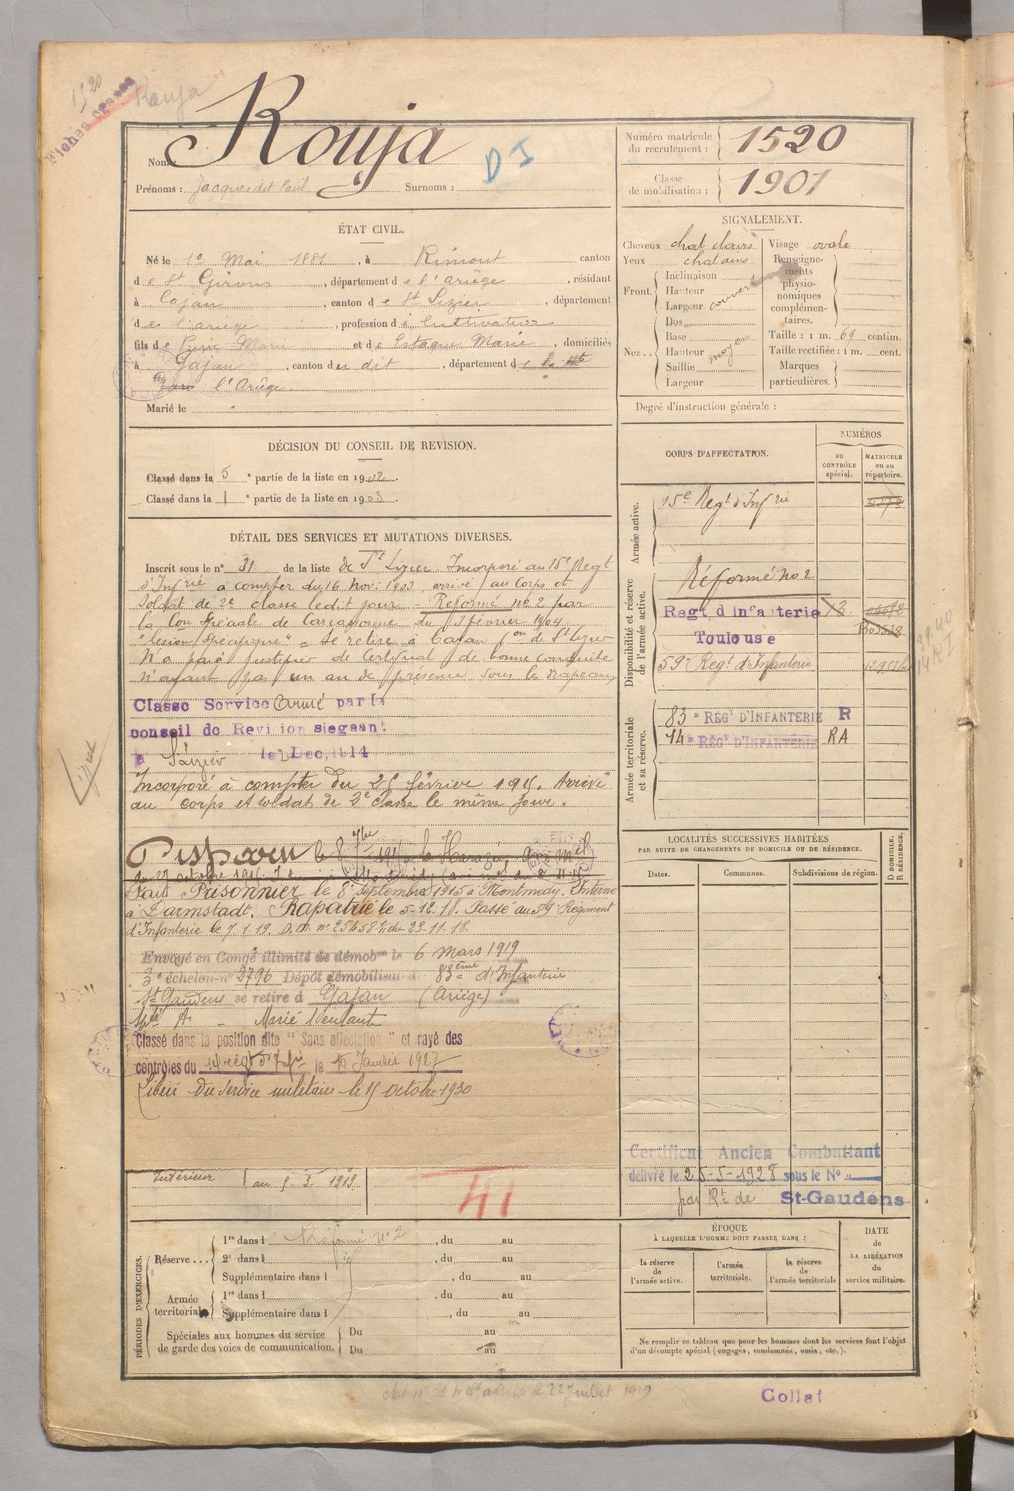 1520
Rouja
Fiches
Rouja
Nom :
D I
Prénoms : Jacques dit Paul Surnoms :
Numéro matricule du recrutement : 1520
Classe de mobilisation : 1901
ÉTAT CIVIL.
Né le 1er Mai 1881, à Rimont canton
de St Girons, département de l'Ariège, résidant
à Gajan, canton de St Lizier, département
de l'ariège, profession de Cultivateur
fils de Marie et de Estaque Marie, domiciliés
à Gajan, canton du dit, département de la Hte
l'Ariège.
Marié le
SIGNALEMENT.
Cheveux chat clairs
Yeux chatains
Front. Inclinaison
Hauteur
Largeur couvert
Nez.. Dos
Base
Hauteur moyen
Saillie
Largeur
Visage ovale
Renseignements physionomiques complémentaires.
Taille : 1 m. 69 centim.
Taille rectifiée : 1 m. cent.
Marques particulières.
Degré d'instruction générale :
DÉCISION DU CONSEIL DE REVISION.
Classé dans la 5e partie de la liste en 1902.
Classé dans la 1e partie de la liste en 1903.
DÉTAIL DES SERVICES ET MUTATIONS DIVERSES.
Inscrit sous le n° 31 de la liste de St Lizier. Incorporé au 15e Regt
d'Infrie à compter du 16 Nov. 1903, arrivé au Corps et
soldat de 2e classe ledit jour. – Réformé no 2 par
la Con spéciale de Carcassonne du 5 février 1904
se retire à Gajan con de St Lizier
N'a pas justifié de Certificat de bonne conduite
n'ayant pas un an de présence sous les drapeaux
Classe Service Armé par le
conseil de Revision siegeant
à St Lizier le 2 Dec. 1914
Incorporé à compter du 25 février 1915. Arrivé
au corps et soldat de 2e classe le même jour.
Disparu le 8 7bre 1915 à la Harazée, avis mel
du 27 octobre 1915.
Fait Prisonnier le 8 septembre 1915 à Montmedy. Interné
à Darmstadt. Rapatrié le 5-12-18. Passé au 59e Régiment
d'Infanterie le 7.1.19. D.M. no 25658 du 23.11.18.
Envoyé en Congé illimité de démobon le 6 Mars 1919
3e échelon n° 2796 Dépôt démobilisateur 83ème d'Infanterie
St Gaudens se retire à Gajan (Ariège)
Marié 1 enfant
Classé dans la position dite "Sans affectation" et rayé des
contrôles du 14e régt d'Infie le 15 Janvier 1927
Libéré du service militaire le 15 octobre 1930
Intérieur au 5.3.1919
41
CORPS D'AFFECTATION.
NUMÉROS
au CONTRÔLE spécial.
MATRICULE ou au répertoire.
Armée active.
15e Regt d'Infrie
Disponibilité et réserve de l'armée active.
Réformé no 2
Regt d'Infanterie
Toulouse
59e Regt d'Infanterie
Armée territoriale et sa réserve.
83e RÉGT D'INFANTERIE R
14e RÉGT D'INFANTERIE RA
LOCALITÉS SUCCESSIVES HABITÉES
PAR SUITE DE CHANGEMENTS DE DOMICILE OU DE RÉSIDENCE.
Dates.
Communes.
Subdivisions de région.
D DOMICILE. R RÉSIDENCE.
Certificat Ancien Combattant
délivré le 25-5-1928 sous le N°
par Rt de St-Gaudens
PÉRIODES D'EXERCICES.
Réserve ... 1re dans l Réformé no 2, du au
2e dans l, du au
Supplémentaire dans l, du au
Armée territoriale 1re dans l, du au
Supplémentaire dans l, du au
Spéciales aux hommes du service de garde des voies de communication. Du au
Du au
ÉPOQUE
À LAQUELLE L'HOMME DOIT PASSER DANS :
la réserve de l'armée active.
l'armée territoriale.
la réserve de l'armée territoriale
DATE de LA LIBÉRATION du service militaire.
Ne remplir ce tableau que pour les hommes dont les services font l'objet
d'un décompte spécial (engagés, condamnés, omis, etc.).
22 Juillet 1919
Collat